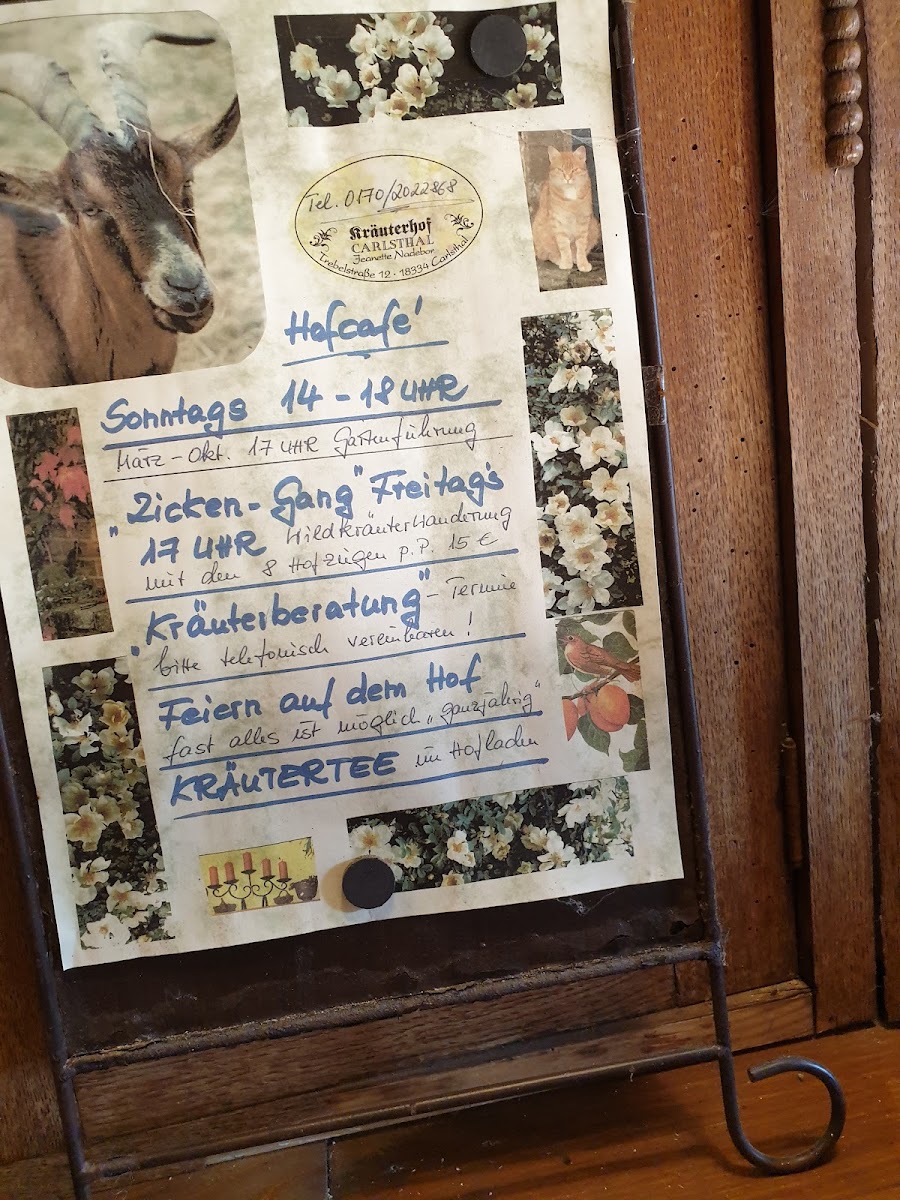 Tel. 0170/2022868
Kräuterhof
CARLSTHAL
Jeanette Nadebor
Trebelstraße 12 · 18334 Carlsthal
Hofcafé
Sonntags 14 - 18 UHR
März - Okt. 17 UHR Gartenführung
„Zicken-Gang" Freitag's
17 UHR WildkräuterWanderung
mit den 8 Hofziegen p.P. 15 €
„Kräuterberatung" - Termine
bitte telefonisch vereinbaren!
Feiern auf dem Hof
fast alles ist möglich „ganzjährig"
KRÄUTERTEE im Hofladen